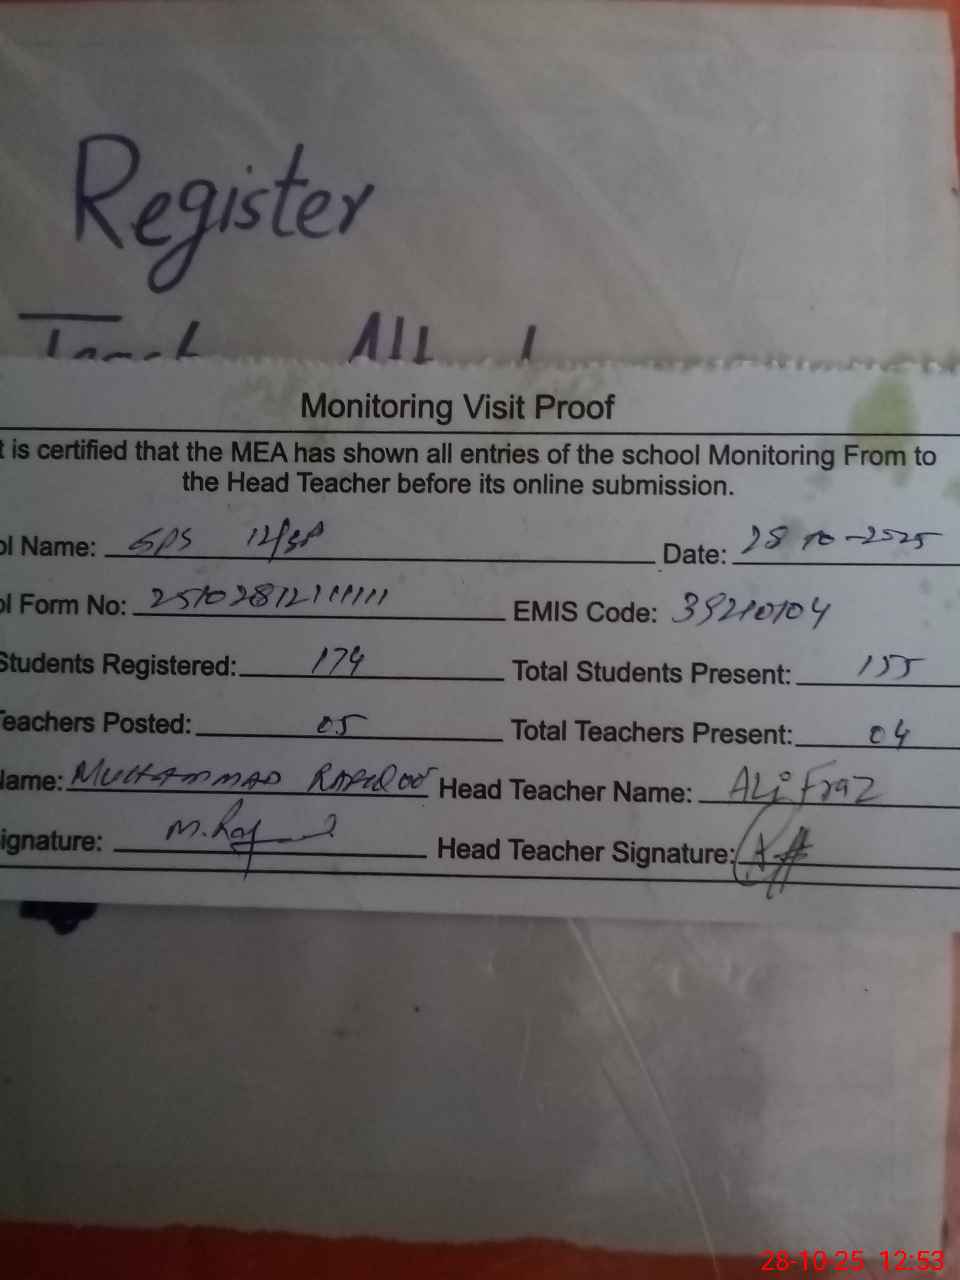 Register
Monitoring Visit Proof
t is certified that the MEA has shown all entries of the school Monitoring From to
the Head Teacher before its online submission.
ol Name: GPS 12/SP Date: 28 10-2025
ol Form No: EMIS Code: 39210104
Students Registered: 174 Total Students Present: 155
Teachers Posted: 05 Total Teachers Present: 04
Name: MUHAMMAD Head Teacher Name: Ali Fraz
ignature: Head Teacher Signature:
28-10-25 12:53